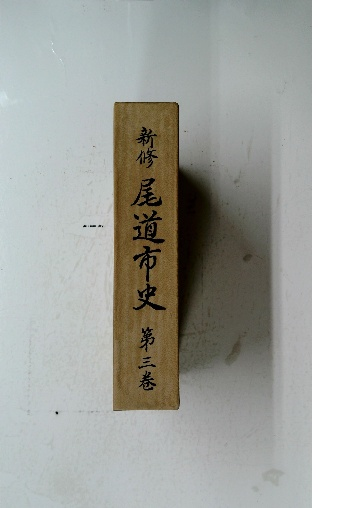 新修 尾道市史 第三巻